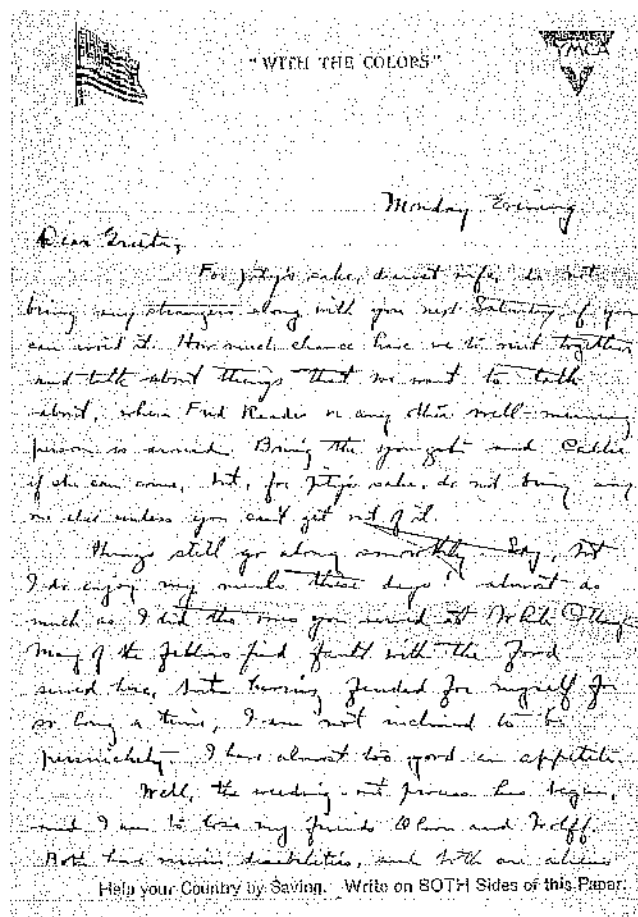 "WITH THE COLORS"
YMCA
Monday Evening
Dear
For pity's sake, dearest wife, do not
bring any strangers along with you next Saturday, if you
can avoid it. How much chance have we to meet together
and talk about things that we want to talk
about, when Fred Reader or any other well-meaning
person is around. Bring the youngster and Callie
if she can come, but, for pity's sake, do not bring any
one else unless you can't get out of it.
Things still go along smoothly. Say, but
I do enjoy my meals these days! almost as
much as I did the ones you served at White
Many of the fellows find fault with the food
served here, but having fended for myself for
so long a time, I am not inclined to be
persnickety. I have almost too good an appetite.
Well, the weeding-out process has begun,
and I am to lose my friends Olson and Wolff.
Both have minor disabilities, and both are aliens
Help your Country by Saving. Write on BOTH Sides of this Paper.